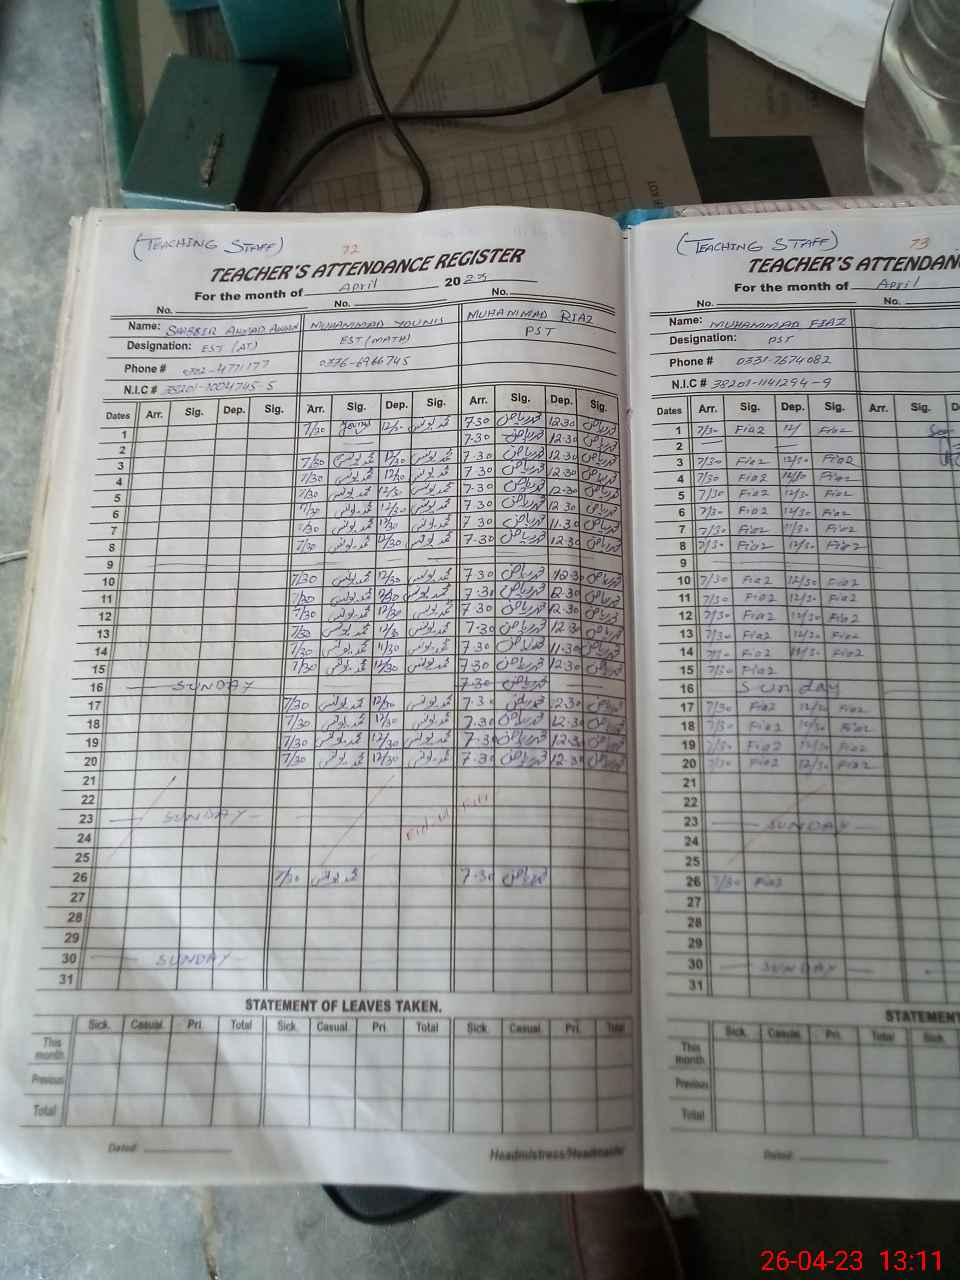 (TEACHING STAFF) 72
TEACHER'S ATTENDANCE REGISTER
For the month of April 2023
No. No. No.
Name: SHABBIR AHMAD AWAN MUHAMMAD YOUNIS MUHAMMAD RIAZ
Designation: EST (AT) EST (MATH) PST
Phone # 0376-6966745
N.I.C #
Dates Arr. Sig. Dep. Sig. Arr. Sig. Dep. Sig. Arr. Sig. Dep. Sig.
1 7/30 Younis 12/30 محمد یونس 7.30 محمد ریاض 12.30 محمد ریاض
2 7.30 محمد ریاض 12.30 محمد ریاض
3 7/30 محمد یونس 12/30 محمد یونس 7.30 محمد ریاض 12.30 محمد ریاض
4 7/30 محمد یونس 12/30 محمد یونس 7.30 محمد ریاض 12.30 محمد ریاض
5 7/30 محمد یونس 12/30 محمد یونس 7.30 محمد ریاض 12.30 محمد ریاض
6 7/30 محمد یونس 12/30 محمد یونس 7.30 محمد ریاض 12.30 محمد ریاض
7 7/30 محمد یونس 11/30 محمد یونس 7.30 محمد ریاض 11.30 محمد ریاض
8 7/30 محمد یونس 12/30 محمد یونس 7.30 محمد ریاض 12.30 محمد ریاض
9
10 7/30 محمد یونس 12/30 محمد یونس 7.30 محمد ریاض 12.30 محمد ریاض
11 7/30 محمد یونس 12/30 محمد یونس 7.30 محمد ریاض 12.30 محمد ریاض
12 7/30 محمد یونس 12/30 محمد یونس 7.30 محمد ریاض 12.30 محمد ریاض
13 7/30 محمد یونس 12/30 محمد یونس 7.30 محمد ریاض 12.30 محمد ریاض
14 7/30 محمد یونس 11/30 محمد یونس 7.30 محمد ریاض 11.30 محمد ریاض
15 7/30 محمد یونس 12/30 محمد یونس 7.30 محمد ریاض 12.30 محمد ریاض
16 SUNDAY 7.30 محمد ریاض
17 7/30 محمد یونس 12/30 محمد یونس 7.30 محمد ریاض 12.30 محمد ریاض
18 7/30 محمد یونس 12/30 محمد یونس 7.30 محمد ریاض 12.30 محمد ریاض
19 7/30 محمد یونس 12/30 محمد یونس 7.30 محمد ریاض 12.30 محمد ریاض
20 7/30 محمد یونس 12/30 محمد یونس 7.30 محمد ریاض 12.30 محمد ریاض
21
22
23 SUNDAY
24
25
26 7/30 محمد یونس 7.30 محمد ریاض
27
28
29
30 SUNDAY
31
STATEMENT OF LEAVES TAKEN.
Sick. Casual. Pri. Total Sick. Casual. Pri. Total Sick. Casual. Pri. Total
This month
Previous
Total
Dated: Headmistress/Headmaster
(TEACHING STAFF) 73
TEACHER'S ATTENDAN
For the month of April
No. No.
Name: MUHAMMAD FIAZ
Designation: PST
Phone # 0331-7674082
N.I.C # 38201-1141294-9
Dates Arr. Sig. Dep. Sig. Arr. Sig. D
1 7/30 Fiaz 12/ Fiaz
2
3 7/30 Fiaz 12/30 Fiaz
4 7/30 Fiaz 12/30 Fiaz
5 7/30 Fiaz 12/30 Fiaz
6 7/30 Fiaz 12/30 Fiaz
7 7/30 Fiaz 11/30 Fiaz
8 7/30 Fiaz 12/30 Fiaz
9
10 7/30 Fiaz 12/30 Fiaz
11 7/30 Fiaz 12/30 Fiaz
12 7/30 Fiaz 12/30 Fiaz
13 7/30 Fiaz 12/30 Fiaz
14 7/30 Fiaz 11/30 Fiaz
15 7/30 Fiaz
16 Sunday
17 7/30 Fiaz 12/30 Fiaz
18 7/30 Fiaz 12/30 Fiaz
19 7/30 Fiaz 12/30 Fiaz
20 7/30 Fiaz 12/30 Fiaz
21
22
23 SUNDAY
24
25
26 7/30 Fiaz
27
28
29
30 SUNDAY
31
STATEMENT
Sick. Casual. Pri. Total Sick.
This month
Previous
Total
Dated:
26-04-23 13:11